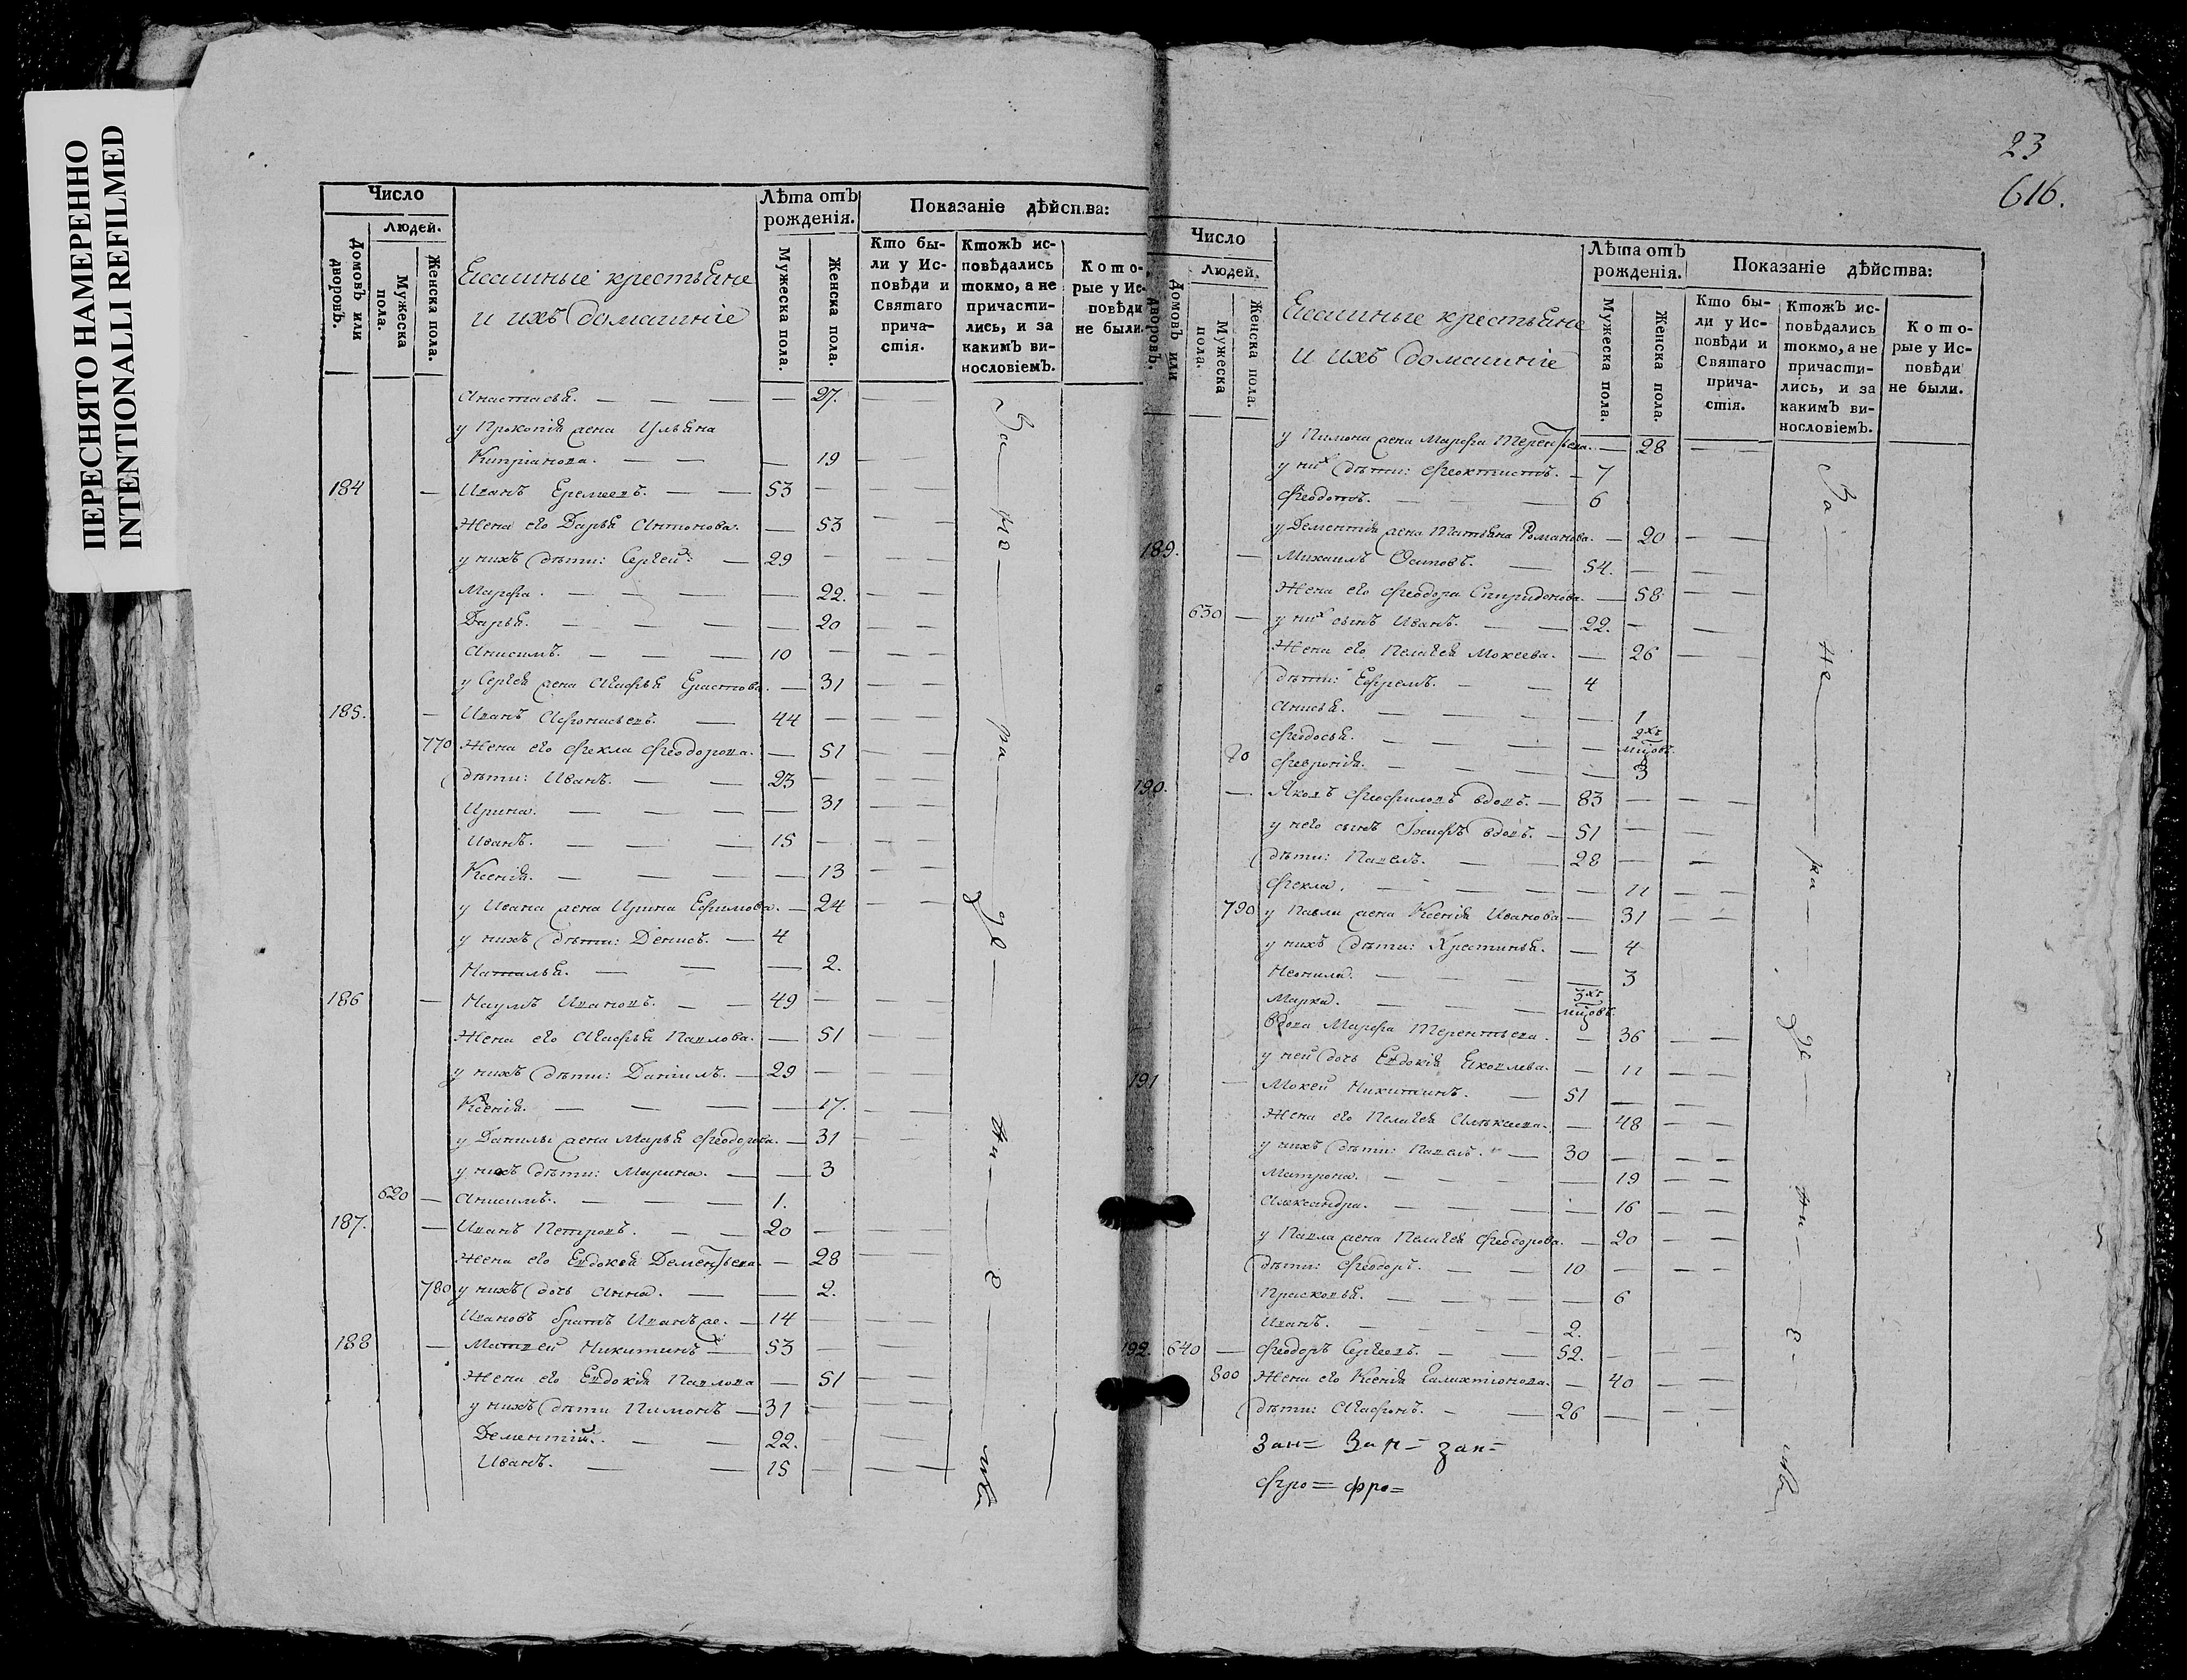 ПЕРЕСНЯТО НАМЕРЕННО
INTENTIONALLI REFILMED
Число
Людей.
Домовъ или дворовъ.
Мужеска пола.
Женска пола.
крестьяне
и ихъ домашніе
Лѣта отъ рожденія.
Мужеска пола.
Женска пола.
Показаніе дѣйства:
Кто были у Исповѣди и Святаго причастія.
Ктожъ исповѣдались токмо, а не причастились, и за какимъ винословіемъ.
Которые у Исповѣди не были.
Анастасья. — — — — 27. — —
у Прокопія жена Ульяна
Кипріанова. — — — 19 — —
184 — Иванъ Еремеевъ. — — 53 — — —
Жена его Дарья Антонова. — 53 — —
у нихъ дѣти: Сергей. — 29 — — —
Марѳа. — — — — 22. — —
Дарья. — — — — 20 — —
Анисимъ. — — — 10 — — —
у Сергея жена Агафья Ерастова. — 31 — —
185. — Иванъ Афонасьевъ. — 44 — — —
770 Жена его Фекла Феодорова. — 51 — —
дѣти: Иванъ. — — 23 — — —
Ирина. — — — — 31 — —
Иванъ. — — — 15 — — —
Ксенія. — — — — 13 — —
у Ивана жена Ирина Ефимова. — 24 — —
у нихъ дѣти: Денисъ. — 4
Наталья. — — — 2.
186 — Наумъ Ивановъ. — — 49 — — —
Жена его Агафья Павлова. — 51 — —
у нихъ дѣти: Даніилъ. — 29 — — —
Ксенія. — — — — 17. — —
у Данилы жена Марья Феодорова. — 31 — —
у нихъ дѣти: Марина. — — 3
620 — Анисимъ. — — — 1.
187. — Иванъ Петровъ. — — 20 — — —
Жена его Евдокея Дементьева. — 28 — —
780 у нихъ дочь Анна. — — 2.
Ивановъ братъ Иванъ же. — 14 — — —
188 — Матвей Никитинъ — 53 — — —
Жена его Евдокія Павлова — 51 — —
у нихъ дѣти Пимонъ — 31 — — —
Дементій. — — 22. — — —
Иванъ. — — 15 — — —
За — не — ра — де — ни — е — мъ
23
616.
Число
Людей.
Домовъ или дворовъ.
Мужеска пола.
Женска пола.
крестьяне
и ихъ домашніе
Лѣта отъ рожденія.
Мужеска пола.
Женска пола.
Показаніе дѣйства:
Кто были у Исповѣди и Святаго причастія.
Ктожъ исповѣдались токмо, а не причастились, и за какимъ винословіемъ.
Которые у Исповѣди не были.
у Пимона жена Марѳа Терентьева. — 28 — —
у них дѣти: Феоктистъ. — 7
Феодотъ. — — — 6
у Дементія жена Татьяна Романова. — 20 — —
189. — Михаилъ Осиповъ. — 54. — — —
Жена его Феодора Спиридонова. — 58 — —
630 — у них сынъ Иванъ. — — 22. — — —
Жена его Пелагея Мокеева. — 26 — —
дѣти: Ефремъ. — — 4
Анисья. — — — — 1
Феодосья. — — — — 2хъ мцовъ.
Февронія. — — — — 3
190. — Яковъ Феофиловъ вдовъ. — 83 — — —
у него сынъ Іосифъ вдовъ. — 51 — — —
дѣти: Павелъ. — — 28 — —
Фекла. — — — — 11 — —
790 у Павла жена Ксенія Иванова — 31 — —
у нихъ дѣти: Хрестинья. — 4
Неонила. — — — 3
Марка. — — — 3хъ мцовъ.
вдова Марѳа Терентьева. — 36 — —
у ней дочь Евдокія Яковлева. — 11 — —
191 — Мокей Никитинъ. — 51 — — —
Жена его Пелагея Алексеева. — 48 — —
у нихъ дѣти: Павелъ. — 30 — — —
Матрона. — — — — 19 — —
Александра. — — — — 16 — —
у Павла жена Пелагея Феодорова. — 20 — —
дѣти: Феодоръ. — — 10 — — —
Прасковья. — — — — 6
Иванъ. — — — 2.
192. 640 — Феодоръ Сергеевъ. — — 52. — — —
800 Жена его Ксенія Галихтіонова. — 40 — —
дѣти: Агафонъ. — — 26 — — —
За — не — ра — де — ни — е — мъ